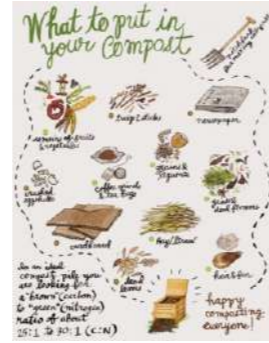 What to put in
your Compost
remains of fruits
& vegetables
twigs & sticks
newspaper
crushed
eggshells
coffee grinds
& tea bags
grass and flowers
cardboard
Hay/Straw
dead
leaves
hair & fur
In an ideal
compost pile you
are looking for
a "brown" (carbon)
to "green" (nitrogen)
ratio of about
25:1 to 30:1 (C:N)
happy
composting
everyone!